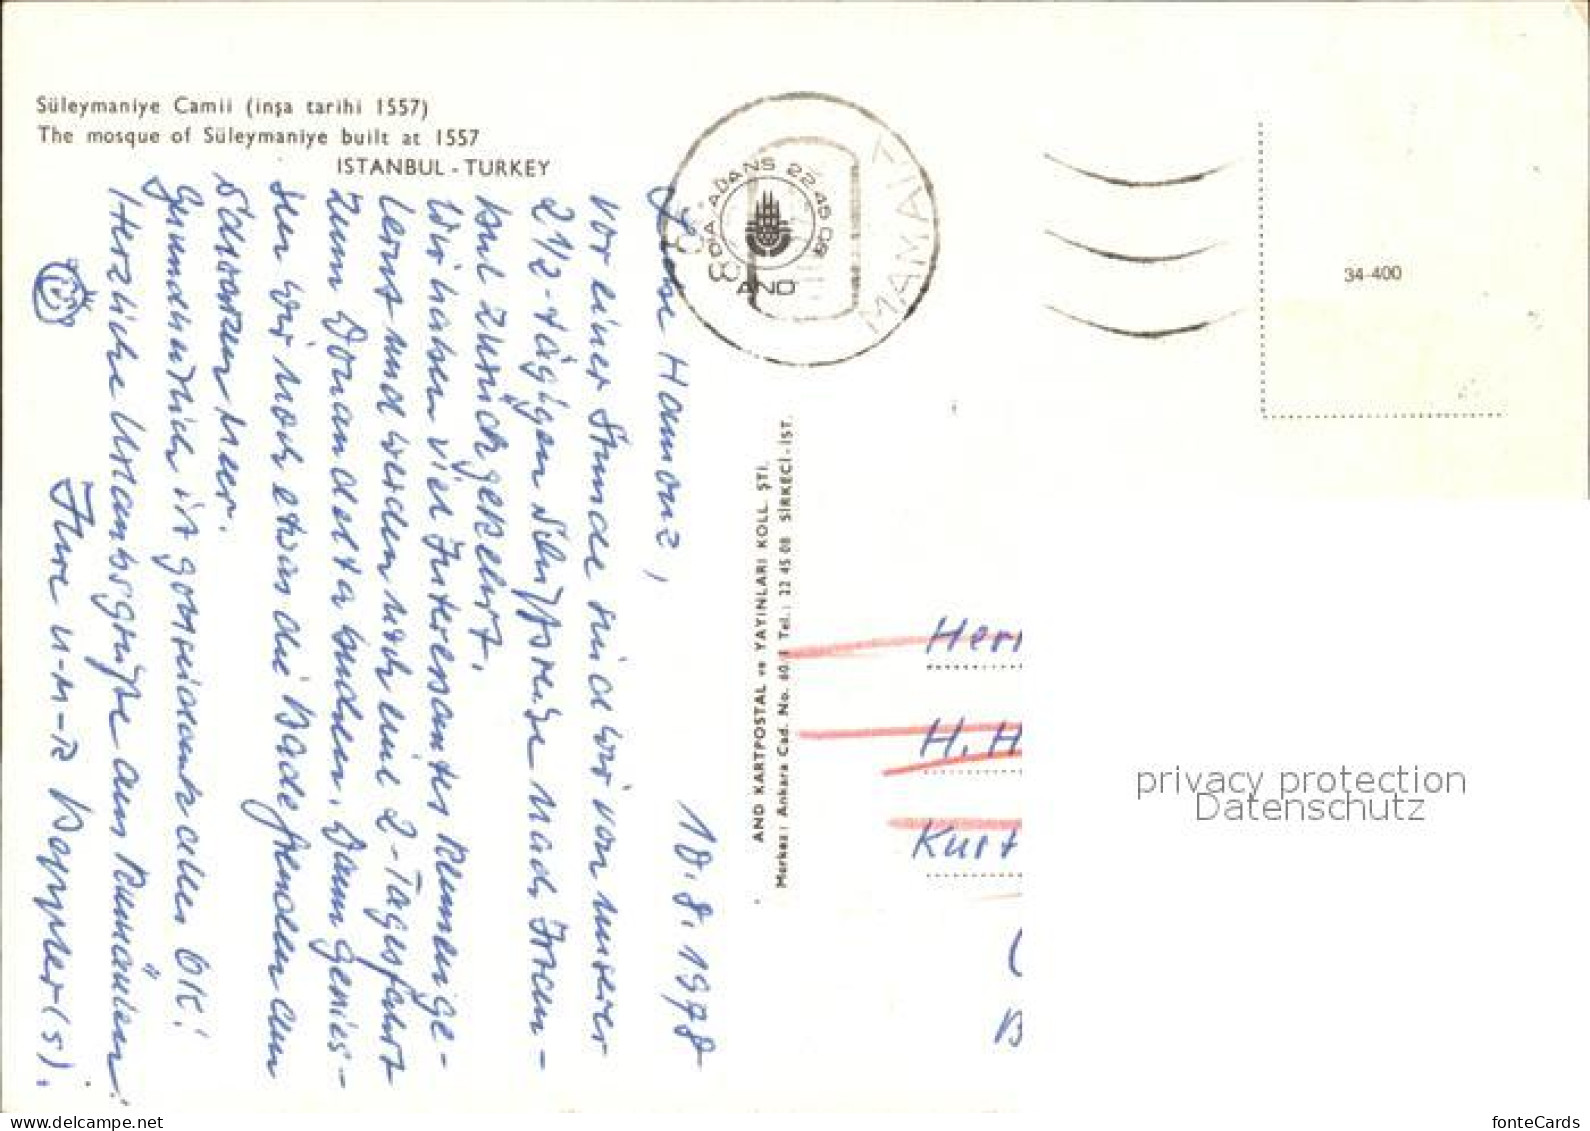 Süleymaniye Camii (inşa tarihi 1557)
The mosque of Süleymaniye built at 1557
ISTANBUL - TURKEY
Hamonz,
10.8.1978
vor einer Stunde sind wir von unserer
2 1/2-tägigen Schiffsreise nach Istan-
bul zurückgekehrt.
Wir haben viel Interessantes kennenge-
lernt und werden noch eine 2-Tagesfahrt
zum Donaudelta buchen. Dann genies-
sen wir noch etwas die Badefreuden am
Schwarzen Meer.
Gesundheitlich ist gottseidank alles OK!
Herzliche Urlaubsgrüße aus Rumänien!
Ihre u-m-R
AND KARTPOSTAL ve YAYINLARI KOLL. ŞTİ.
Merkez: Ankara Cad. No. 60/1 Tel.: 22 45 08 SİRKECİ-İST.
22 45 08
AND
MAMAIA
34-400
Herr
H. H
Kurt
B
privacy protection
Datenschutz
www.delcampe.net
fonteCards